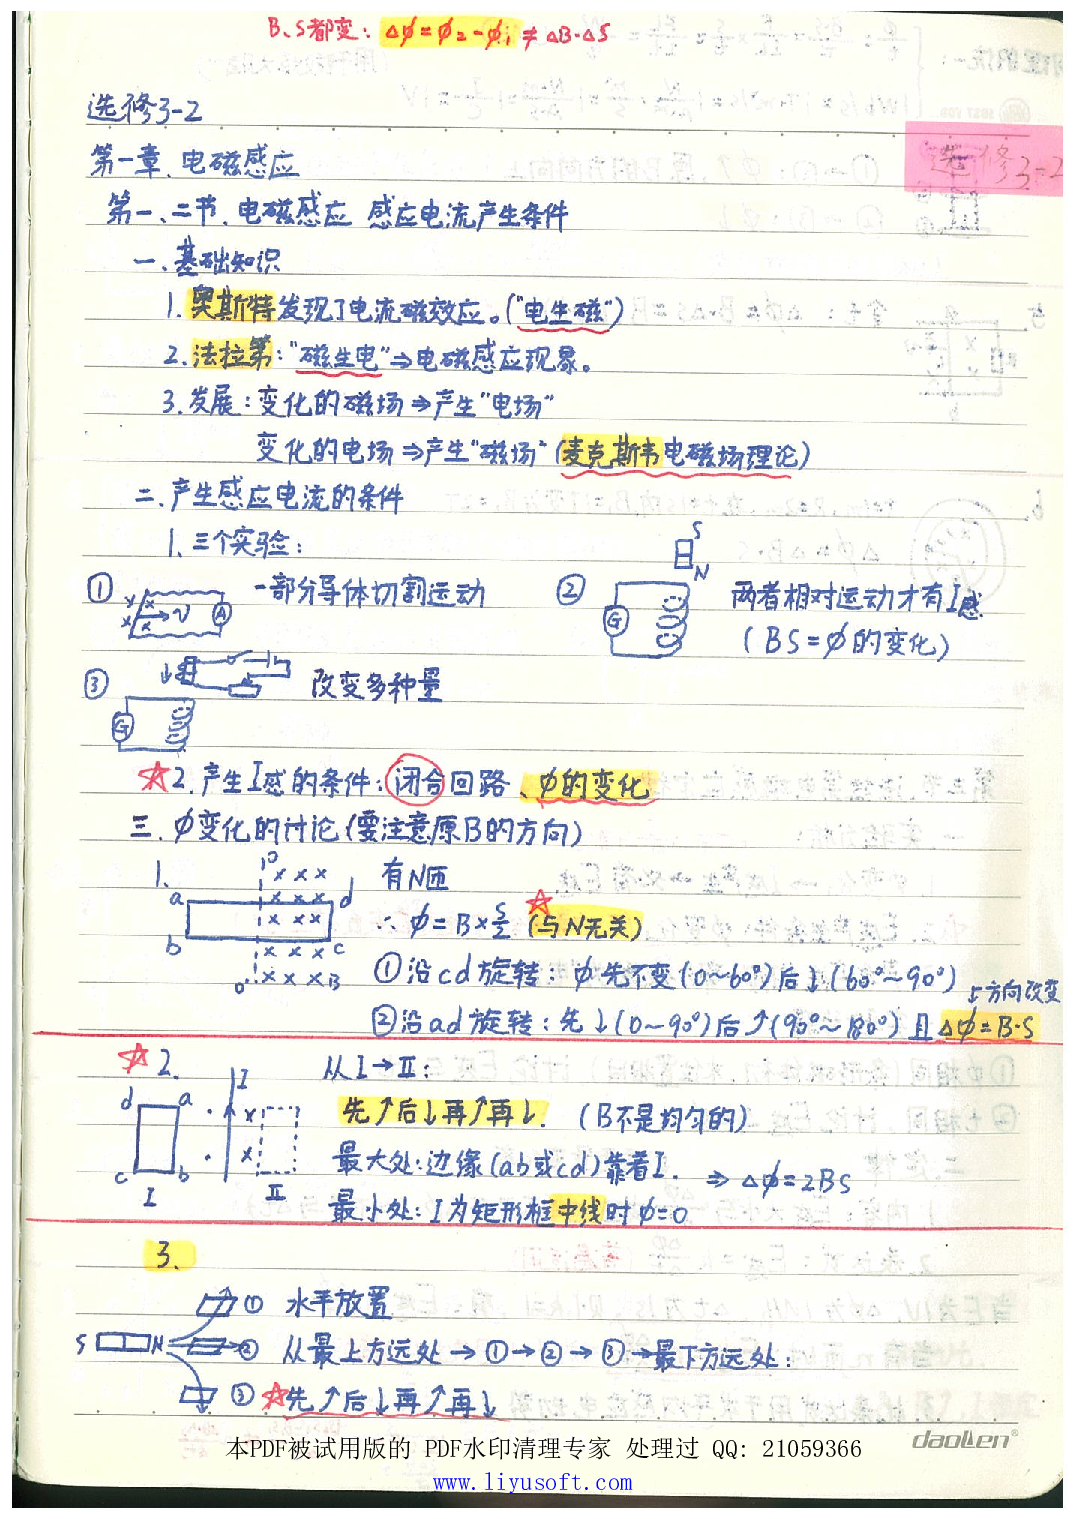 B、S都变: Δφ=φ₂-φ₁ ≠ ΔB·ΔS
选修3-2
选修3-2
第一章、电磁感应
第一、二节、电磁感应 感应电流产生条件
一、基础知识
1. 奥斯特发现了电流磁效应。("电生磁")
2. 法拉第:"磁生电"⇒电磁感应现象。
3. 发展:变化的磁场⇒产生"电场"
变化的电场⇒产生"磁场"(麦克斯韦电磁场理论)
二、产生感应电流的条件
1、三个实验:
① x x x x v A 一部分导体切割运动
② S N G 两者相对运动才有I感
(BS=φ的变化)
③ G 改变多种量
☆2、产生I感的条件:闭合回路、φ的变化
三、φ变化的讨论(要注意原B的方向)
1、 a b c d o o' B 有N匝
∴ φ=B×S/2 (与N无关)
①沿cd旋转:φ先不变(0~60°)后↓(60°~90°)
↓方向改变
②沿ad旋转:先↓(0~90°)后↑(90°~180°)且Δφ=B·S
☆2. 从I→II:
d a c b I I II
先↑后↓再↑再↓. (B不是均匀的)
最大处:边缘(ab或cd)靠着I. ⇒Δφ=2BS
最小处:I为矩形框中线时φ=0
3.
① 水平放置
S N ② 从最上方远处→①→②→③→最下方远处:
③ ☆先↑后↓再↑再↓
本PDF被试用版的 PDF水印清理专家 处理过 QQ: 21059366
www.liyusoft.com
daolen®